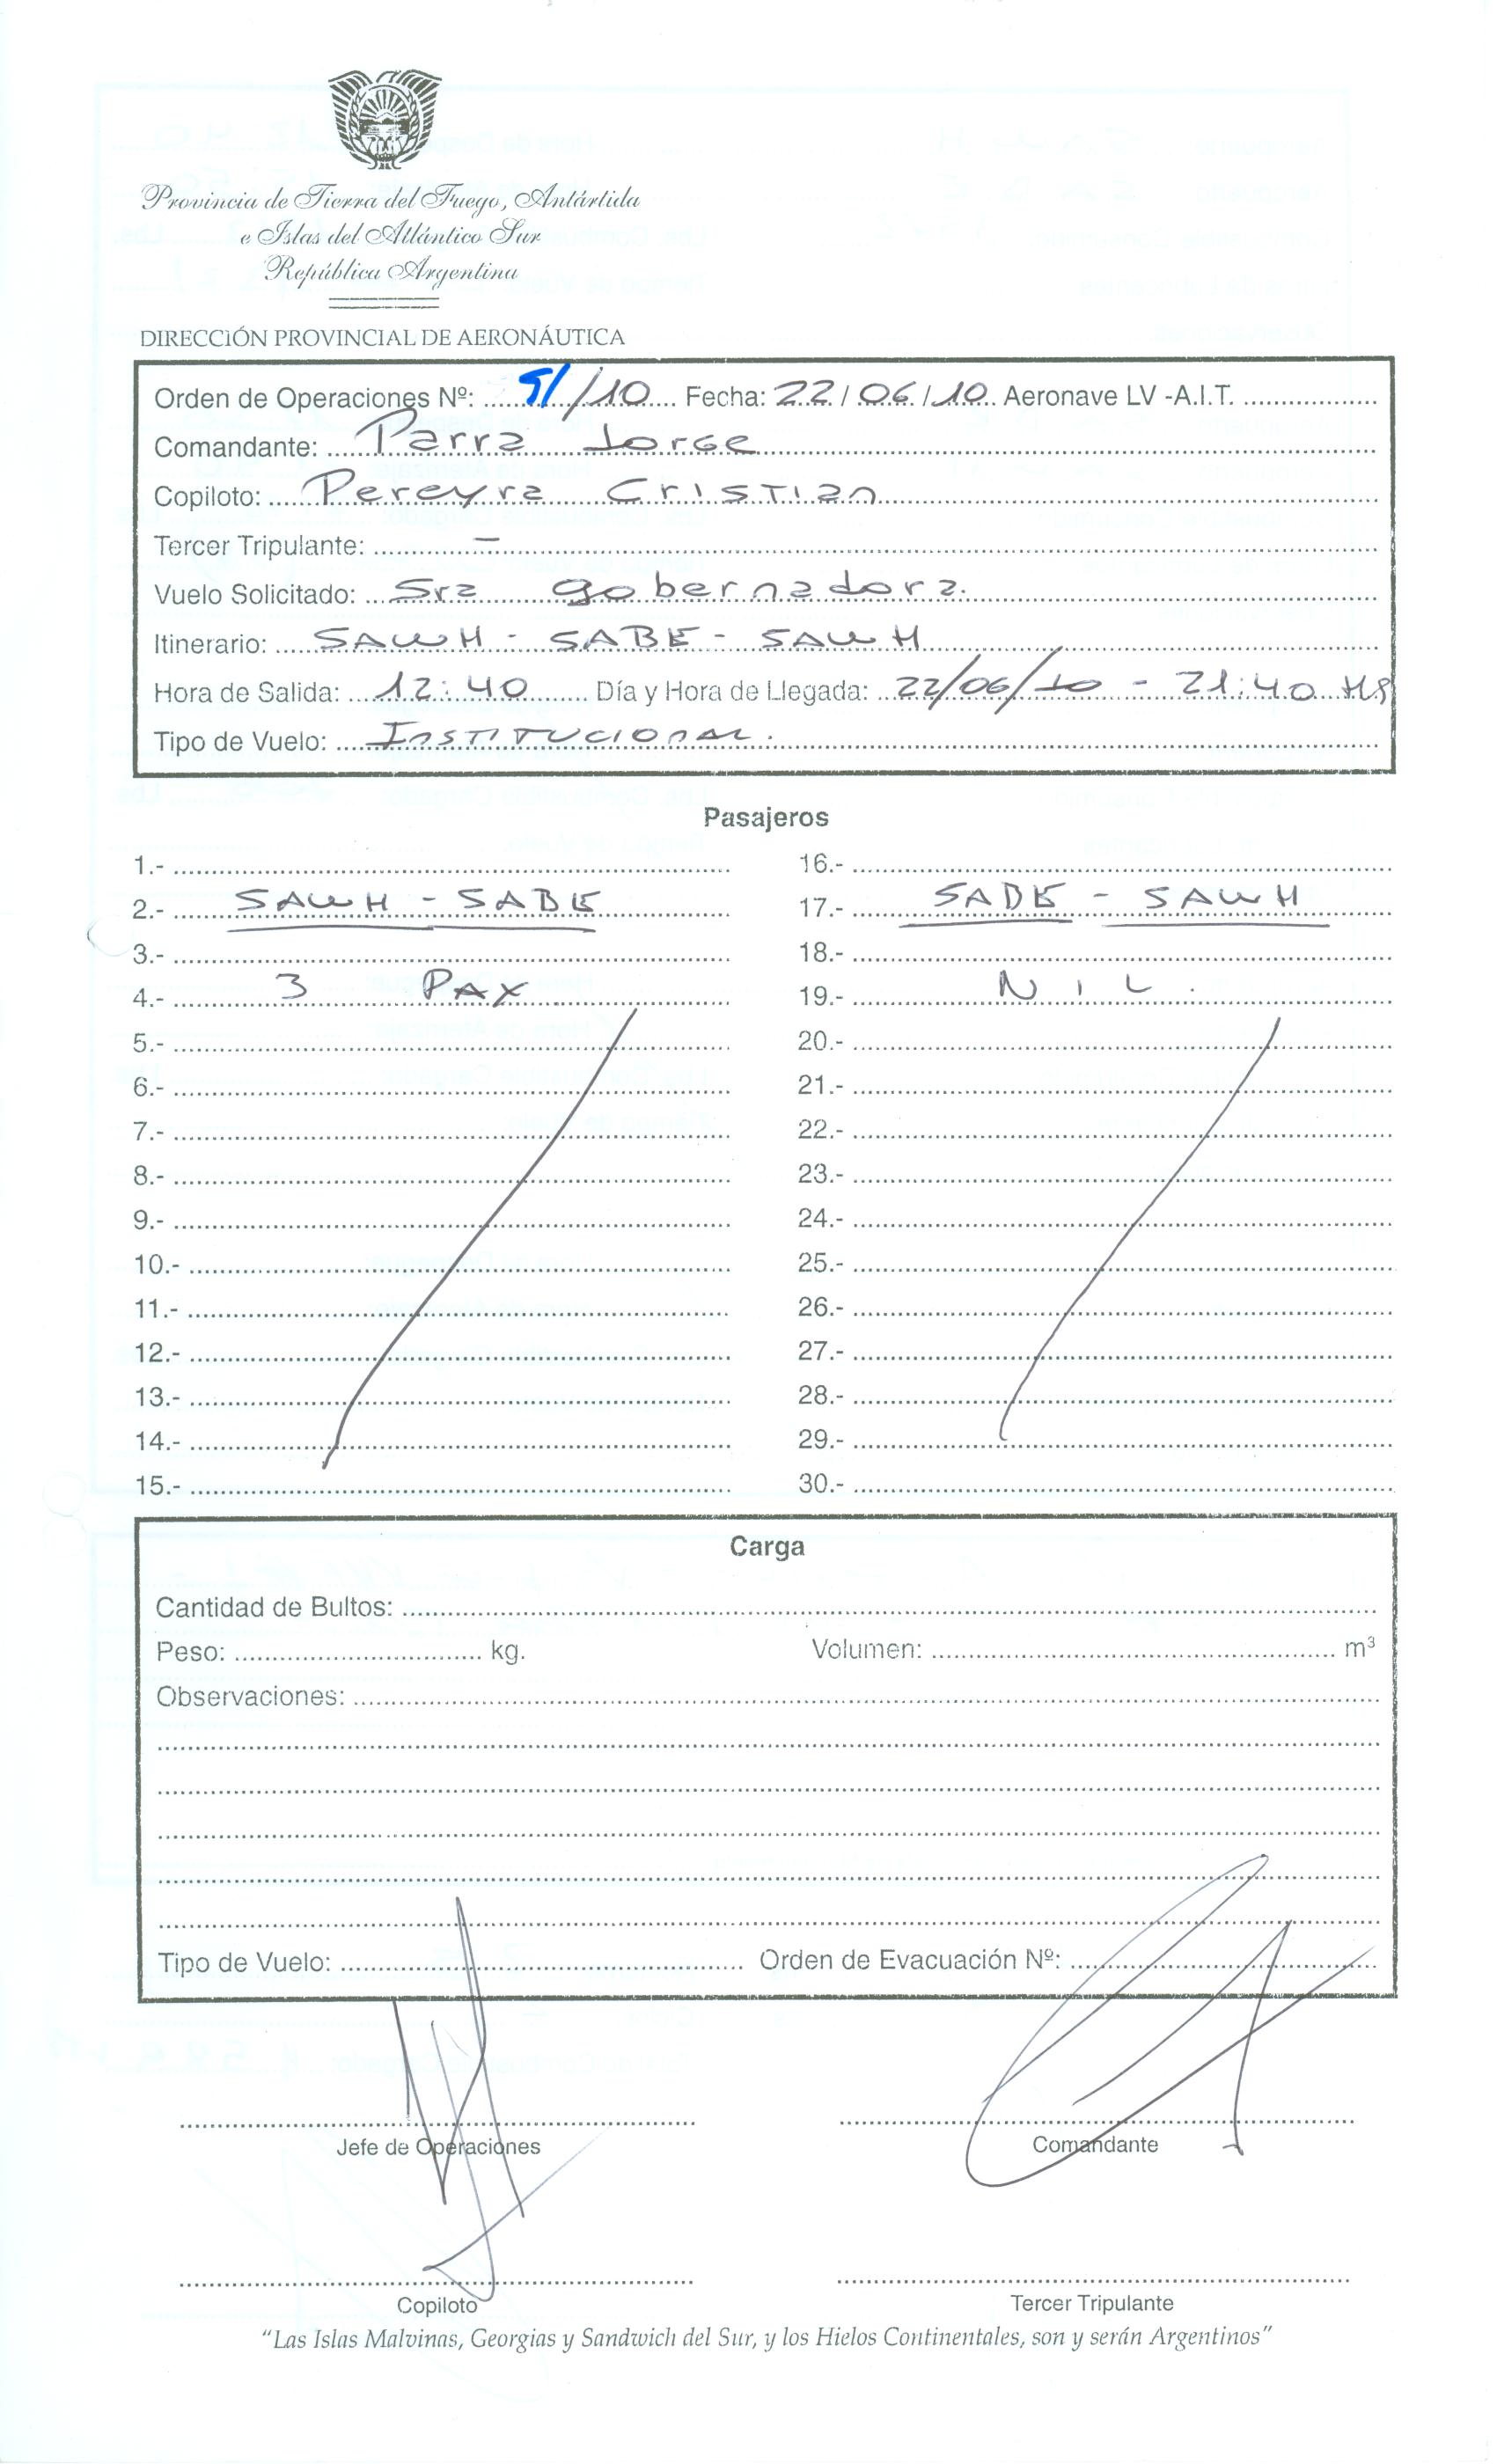 Provincia de Tierra del Fuego, Antártida
e Islas del Atlántico Sur
República Argentina
DIRECCIÓN PROVINCIAL DE AERONÁUTICA
Orden de Operaciones Nº: /10 Fecha: 22/06/10 Aeronave LV -A.I.T.
Comandante: Parra Jorge
Copiloto: Pereyra Cristian
Tercer Tripulante: –
Vuelo Solicitado: Sra gobernadora.
Itinerario: SAWH - SABE - SAWH
Hora de Salida: 12:40 Día y Hora de Llegada: 22/06/10 - 21:40 HS
Tipo de Vuelo: Institucional.
Pasajeros
1.- 16.-
2.- SAWH - SABE 17.- SABE - SAWH
3.- 18.-
4.- 3 PAX 19.- NIL.
5.- 20.-
6.- 21.-
7.- 22.-
8.- 23.-
9.- 24.-
10.- 25.-
11.- 26.-
12.- 27.-
13.- 28.-
14.- 29.-
15.- 30.-
Carga
Cantidad de Bultos:
Peso: kg. Volumen: m³
Observaciones:
Tipo de Vuelo: Orden de Evacuación Nº:
Jefe de Operaciones Comandante
Copiloto Tercer Tripulante
"Las Islas Malvinas, Georgias y Sandwich del Sur, y los Hielos Continentales, son y serán Argentinos"